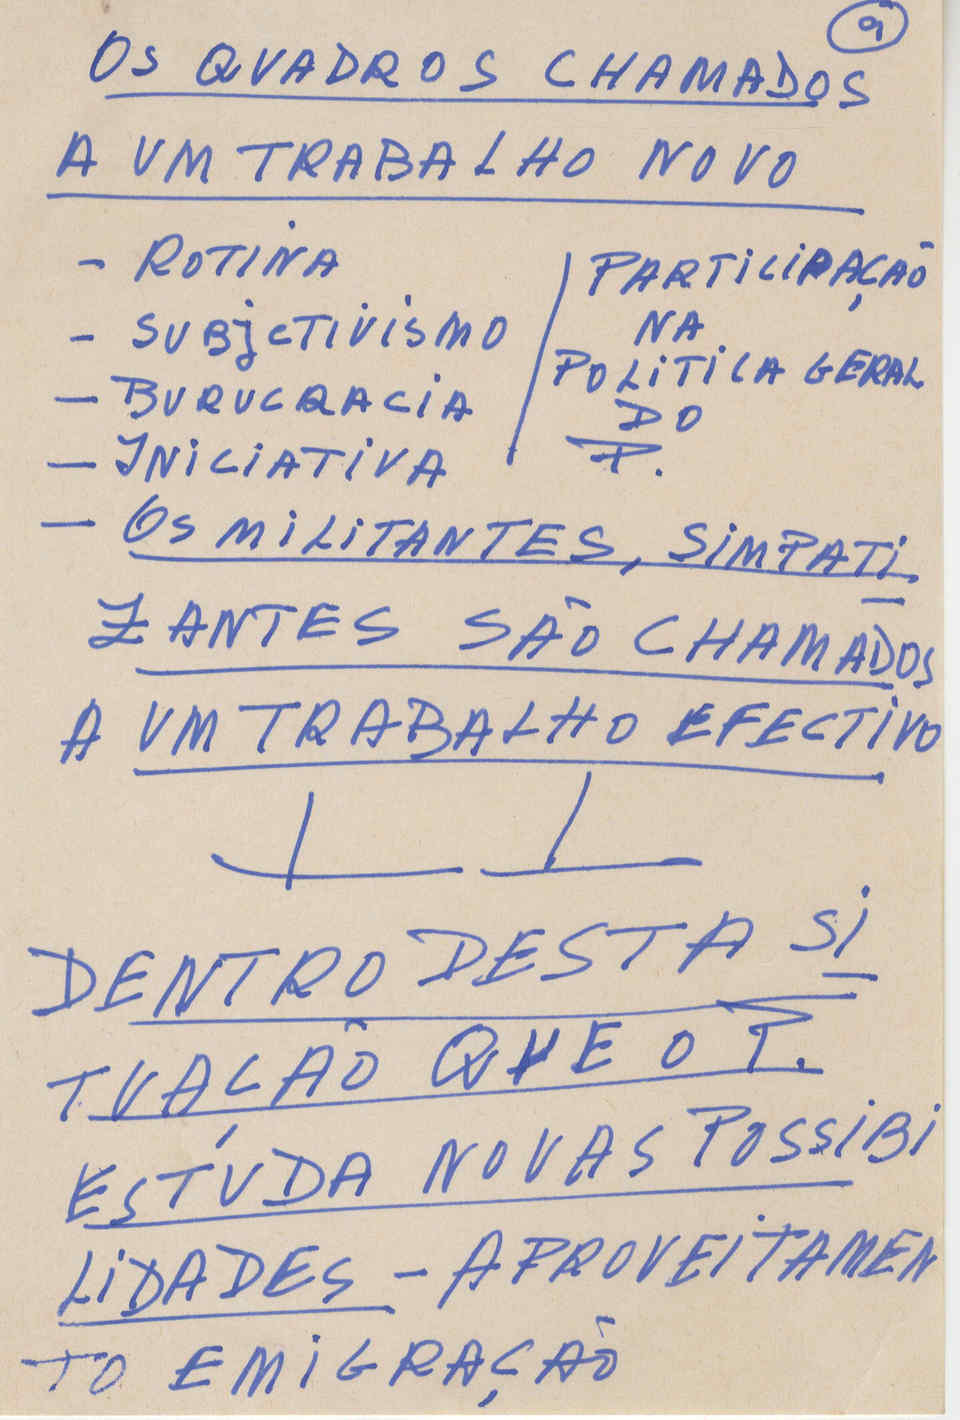 9
OS QUADROS CHAMADOS
A UM TRABALHO NOVO
- ROTINA
- SUBJCTIVISMO
- BURUCRACIA
- INICIATIVA
PARTICIPAÇAÕ
NA
POLITICA GERAL
DO
P.
- OS MILITANTES, SIMPATI
ZANTES SÃO CHAMADOS
A UM TRABALHO EFECTIVO
DENTRO DESTA SI
TUACAÕ QUE O P.
ESTÚDA NOVAS POSSIBI
LIDADES - APROVEITAMEN
TO EMIGRAÇAÕ